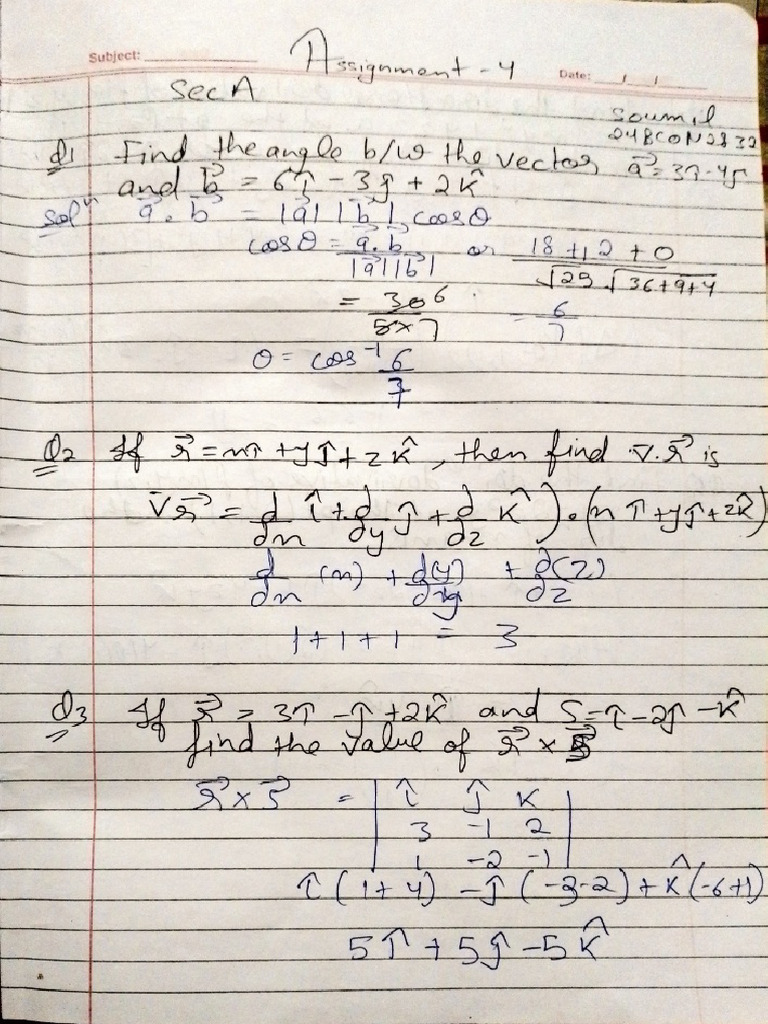 Subject: Assignment - 4 Date:
Sec A
Soumil
24BCON2832
Q1 Find the angle b/w the vector a⃗ = 3î - 4ĵ
and b⃗ = 6î - 3ĵ + 2k̂
solⁿ a⃗ . b⃗ = |a⃗| |b⃗| cosθ
cosθ = a⃗.b⃗ / |a⃗||b⃗| or 18 + 12 + 0 / √25 √36+9+4
= 30 6 / 5 × 7 = 6/7
θ = cos⁻¹ 6/7
Q2 If r⃗ = xî + yĵ + zk̂, then find ∇.r⃗ is
∇r⃗ = d/dx î + d/dy ĵ + d/dz k̂ ) . (x î + yĵ + zk̂)
d/dx (x) + d(y)/dy + d(z)/dz
1 + 1 + 1 = 3
Q3 If r⃗ = 3î - ĵ + 2k̂ and S = î - 2ĵ - k̂
find the value of r⃗ × s⃗
r⃗ × s⃗ = | î ĵ k |
| 3 -1 2 |
| 1 -2 -1 |
î (1 + 4) - ĵ (-3-2) + k̂ (-6+1)
5î + 5ĵ - 5k̂